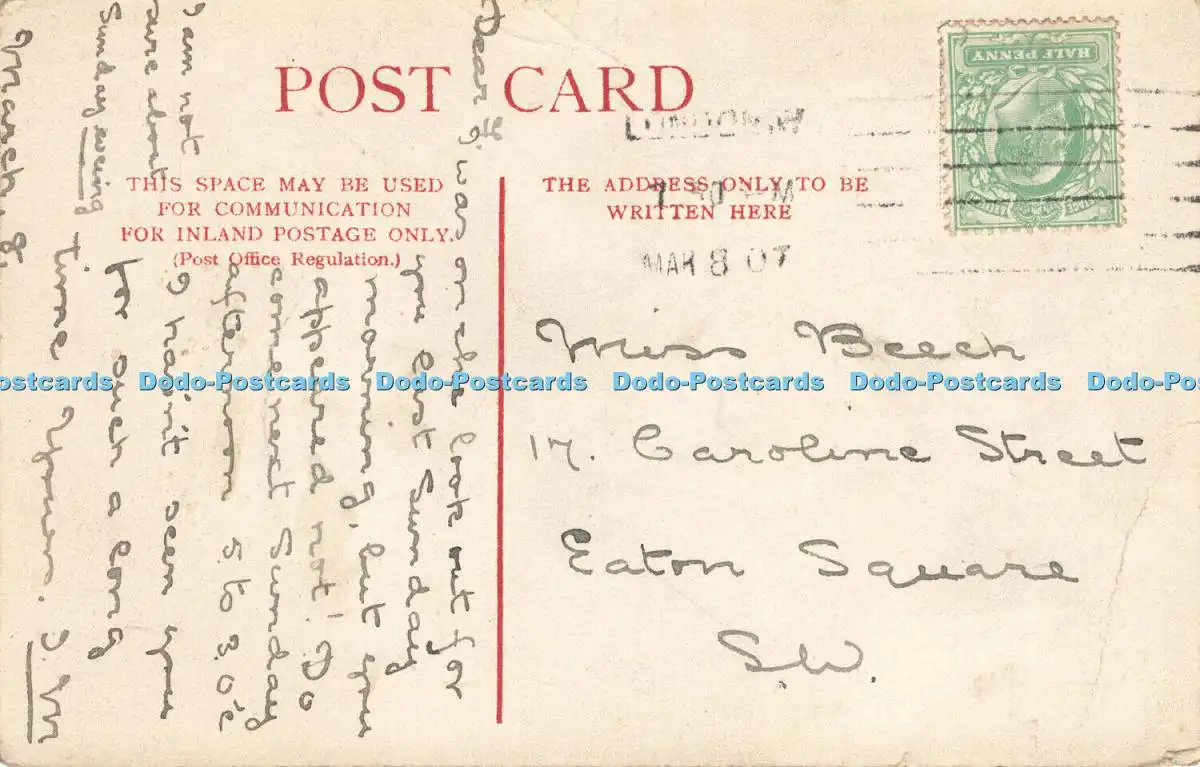 POST CARD
THIS SPACE MAY BE USED
FOR COMMUNICATION
FOR INLAND POSTAGE ONLY.
(Post Office Regulation.)
THE ADDRESS ONLY TO BE
WRITTEN HERE
HALF PENNY
LONDON. W
MAR 8 07
Miss Beech
17. Caroline Street
Eaton Square
S.W.
Dear
was on the look out for
you last Sunday
morning, but you
appeared not! Do
come next Sunday
afternoon
I hav'nt seen you
for such a long
time
I am not
sure about
Sunday
March 8.
Dodo-Postcards Dodo-Postcards Dodo-Postcards Dodo-Postcards Dodo-Postcards